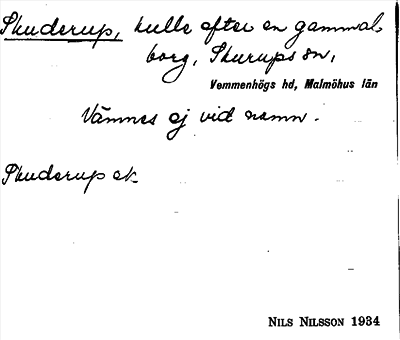 Skuderup, kulle efter en gammal
borg, Skurups sn,
Vemmenhögs hd, Malmöhus län
Nämnes ej vid namn.
Skuderup ek
NILS NILSSON 1934